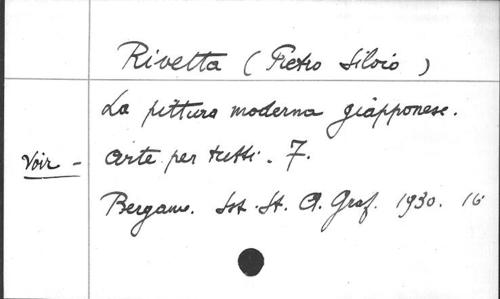 Rivetta (Pietro Silvio)
La pittura moderna giapponese.
Voir - Arte per tutti. 7.
Bergamo. Ist. It. A. Graf. 1930. 16